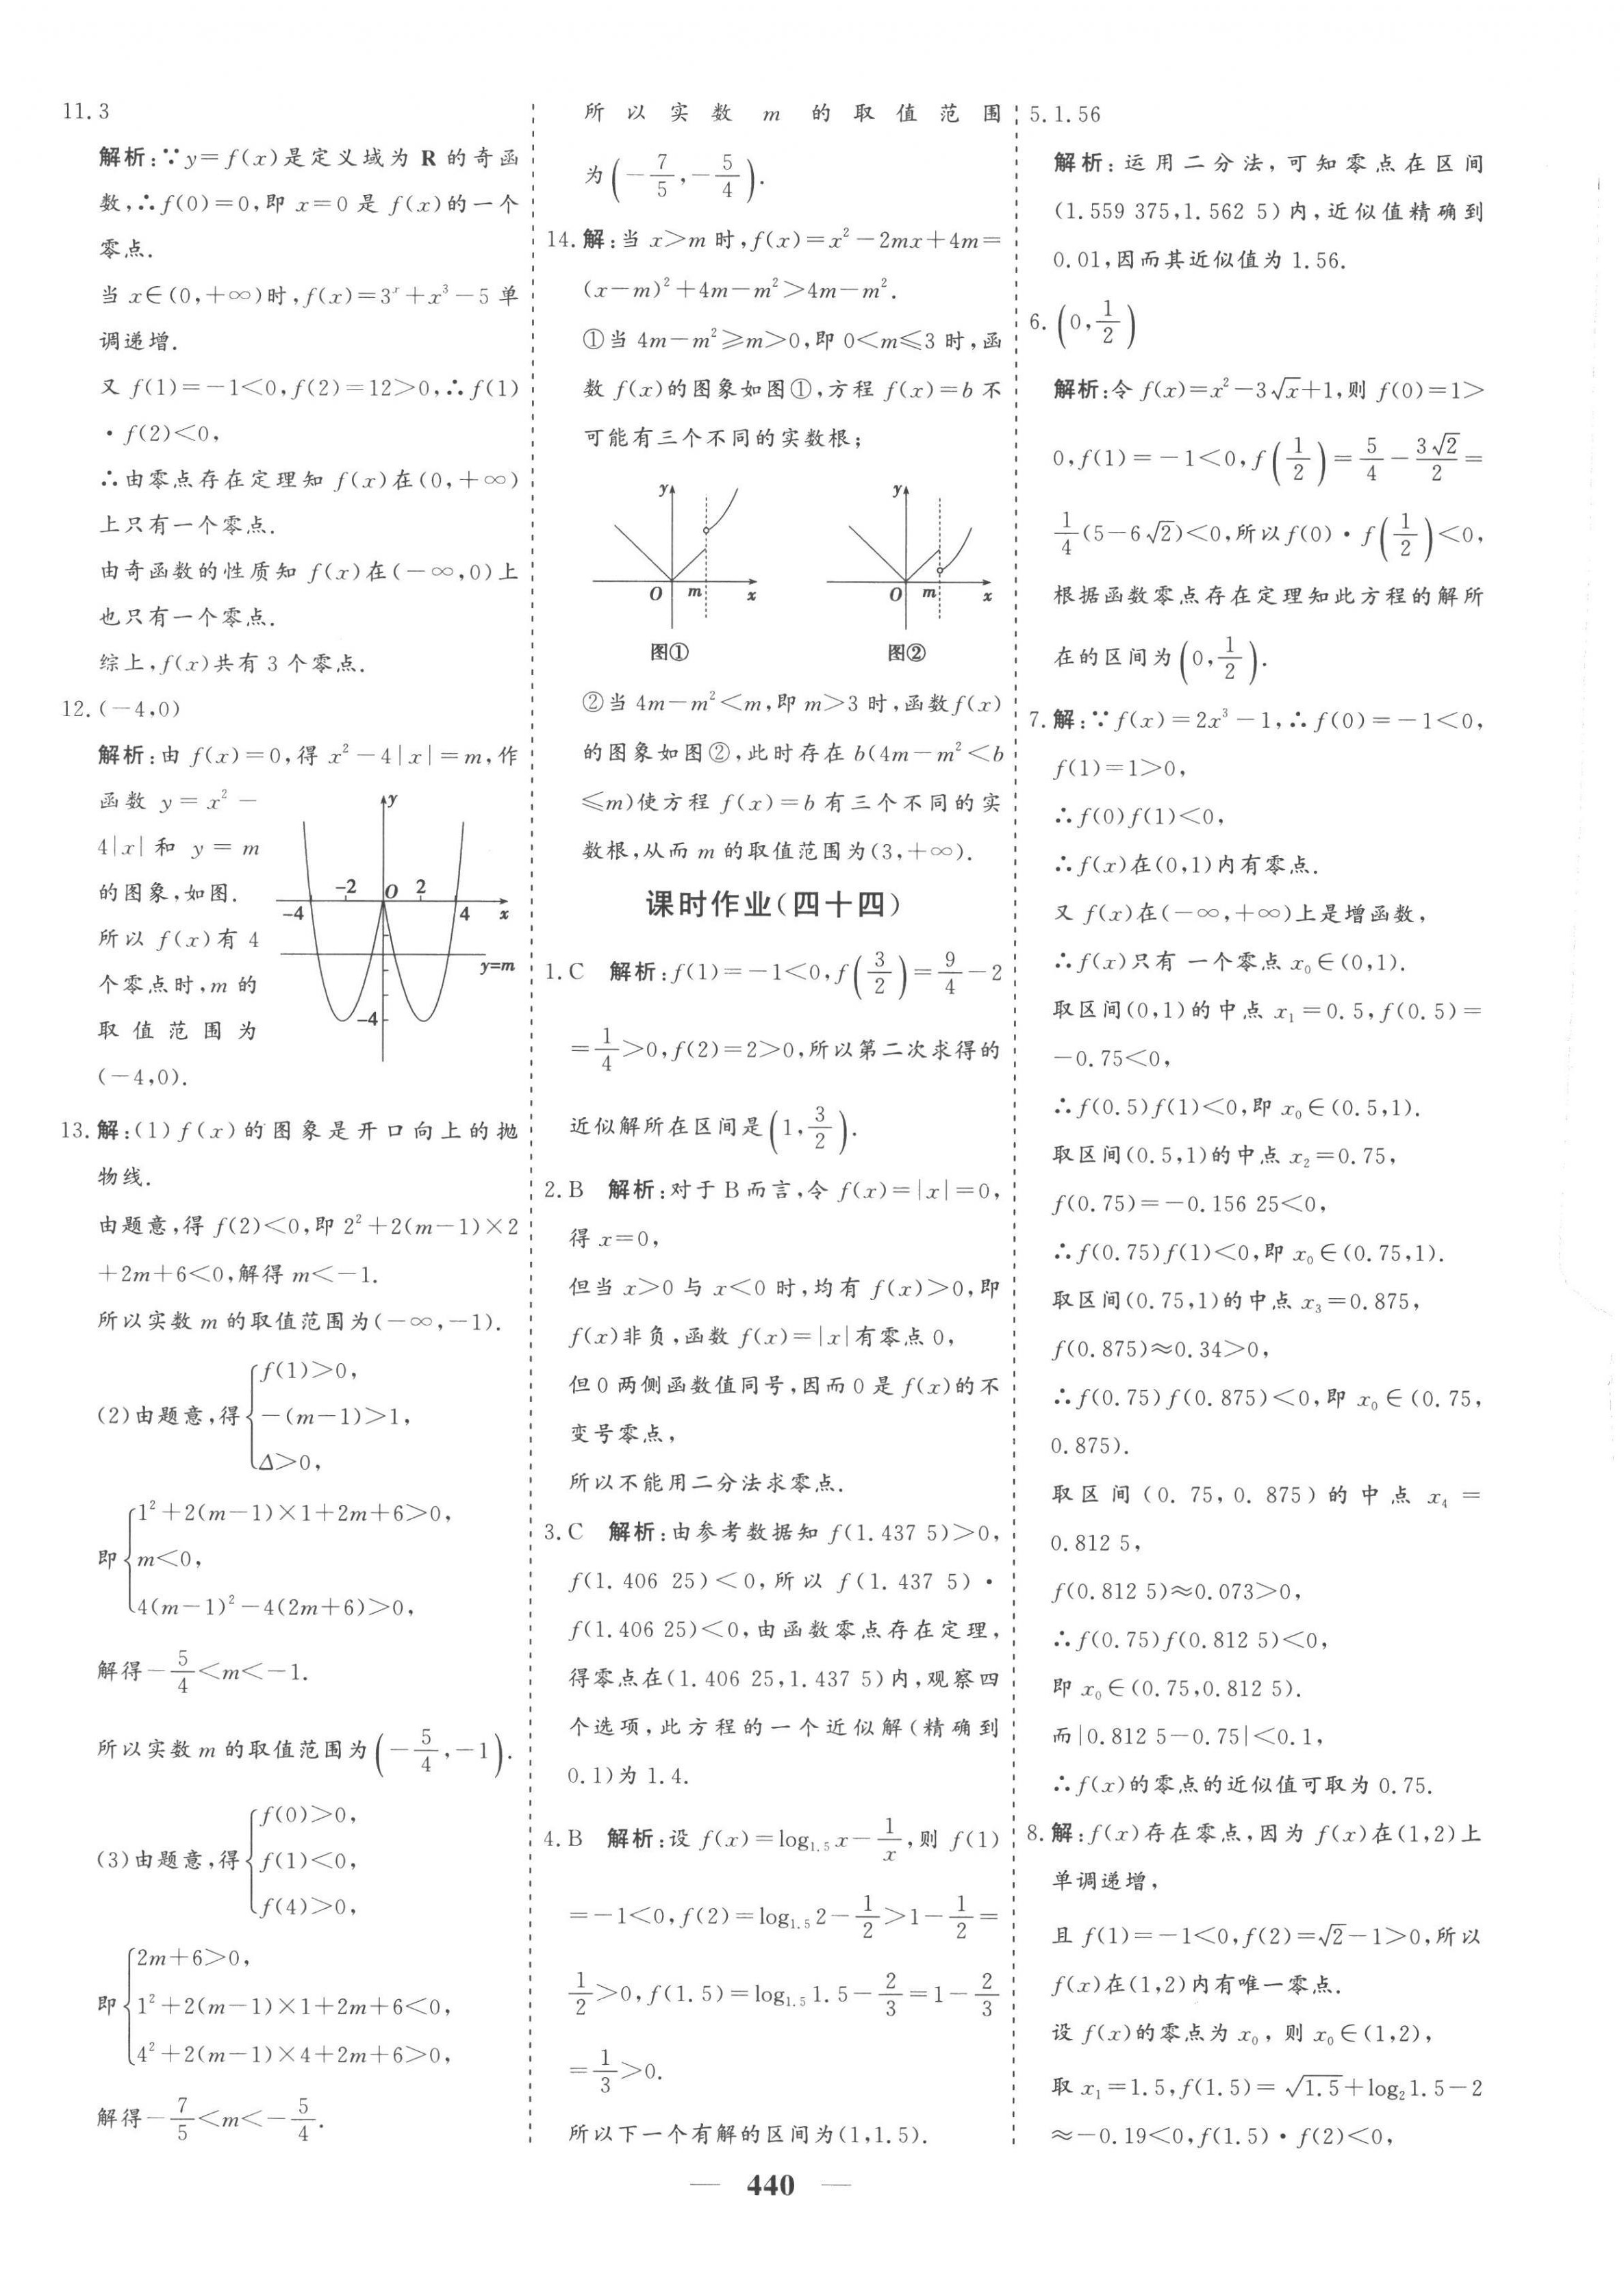 11. 3
解析:∵y=f(x)是定义域为 R 的奇函
数,∴f(0)=0,即 x=0 是 f(x)的一个
零点.
当 x∈(0,+∞)时,f(x)=3ˣ+x³-5 单
调递增.
又 f(1)=-1<0,f(2)=12>0,∴f(1)
· f(2)<0,
∴由零点存在定理知 f(x)在(0,+∞)
上只有一个零点.
由奇函数的性质知 f(x)在(-∞,0)上
也只有一个零点.
综上,f(x)共有 3 个零点.
12. (-4,0)
解析:由 f(x)=0,得 x²-4|x|=m,作
函数 y=x²-
4|x| 和 y=m
的图象,如图.
所以 f(x)有 4
个零点时,m 的
取值范围为
(-4,0).
y
-2 O 2
-4 4 x
y=m
-4
13. 解:(1)f(x)的图象是开口向上的抛
物线.
由题意,得 f(2)<0,即 2²+2(m-1)×2
+2m+6<0,解得 m<-1.
所以实数 m 的取值范围为(-∞,-1).
f(1)>0,
(2)由题意,得{-(m-1)>1,
Δ>0,
1²+2(m-1)×1+2m+6>0,
即{m<0,
4(m-1)²-4(2m+6)>0,
解得-5/4<m<-1.
所以实数 m 的取值范围为(-5/4,-1).
f(0)>0,
(3)由题意,得{f(1)<0,
f(4)>0,
2m+6>0,
即{1²+2(m-1)×1+2m+6<0,
4²+2(m-1)×4+2m+6>0,
解得-7/5<m<-5/4.
所以实数 m 的取值范围
为(-7/5,-5/4).
14. 解:当 x>m 时,f(x)=x²-2mx+4m=
(x-m)²+4m-m²>4m-m².
①当 4m-m²≥m>0,即 0<m≤3 时,函
数 f(x)的图象如图①,方程 f(x)=b 不
可能有三个不同的实数根;
y y
O m x O m x
图① 图②
②当 4m-m²<m,即 m>3 时,函数f(x)
的图象如图②,此时存在 b(4m-m²<b
≤m)使方程 f(x)=b 有三个不同的实
数根,从而 m 的取值范围为(3,+∞).
课时作业(四十四)
1. C 解析:f(1)=-1<0,f(3/2)=9/4-2
=1/4>0,f(2)=2>0,所以第二次求得的
近似解所在区间是(1,3/2).
2. B 解析:对于 B 而言,令 f(x)=|x|=0,
得 x=0,
但当 x>0 与 x<0 时,均有 f(x)>0,即
f(x)非负,函数 f(x)=|x|有零点 0,
但 0 两侧函数值同号,因而 0 是 f(x)的不
变号零点,
所以不能用二分法求零点.
3. C 解析:由参考数据知 f(1.437 5)>0,
f(1.406 25)<0,所以 f(1.437 5)·
f(1.406 25)<0,由函数零点存在定理,
得零点在(1.406 25,1.437 5)内,观察四
个选项,此方程的一个近似解(精确到
0.1)为 1.4.
4. B 解析:设 f(x)=log₁.₅x-1/x,则 f(1)
=-1<0,f(2)=log₁.₅2-1/2>1-1/2=
1/2>0,f(1.5)=log₁.₅1.5-2/3=1-2/3
=1/3>0.
所以下一个有解的区间为(1,1.5).
5. 1.56
解析:运用二分法,可知零点在区间
(1.559 375,1.562 5)内,近似值精确到
0.01,因而其近似值为 1.56.
6. (0,1/2)
解析:令 f(x)=x²-3√x+1,则 f(0)=1>
0,f(1)=-1<0,f(1/2)=5/4-3√2/2=
1/4(5-6√2)<0,所以f(0)·f(1/2)<0,
根据函数零点存在定理知此方程的解所
在的区间为(0,1/2).
7. 解:∵f(x)=2x³-1,∴f(0)=-1<0,
f(1)=1>0,
∴f(0)f(1)<0,
∴f(x)在(0,1)内有零点.
又 f(x)在(-∞,+∞)上是增函数,
∴f(x)只有 一个零点 x₀∈(0,1).
取区间(0,1)的中点 x₁=0.5,f(0.5)=
-0.75<0,
∴f(0.5)f(1)<0,即 x₀∈(0.5,1).
取区间(0.5,1)的中点 x₂=0.75,
f(0.75)=-0.156 25<0,
∴f(0.75)f(1)<0,即 x₀∈(0.75,1).
取区间(0.75,1)的中点 x₃=0.875,
f(0.875)≈0.34>0,
∴f(0.75)f(0.875)<0,即 x₀∈(0.75,
0.875).
取区间(0.75,0.875)的中点 x₄=
0.812 5,
f(0.812 5)≈0.073>0,
∴f(0.75)f(0.812 5)<0,
即 x₀∈(0.75,0.812 5).
而|0.812 5-0.75|<0.1,
∴f(x)的零点的近似值可取为 0.75.
8. 解:f(x)存在零点,因为 f(x)在(1,2)上
单调递增,
且 f(1)=-1<0,f(2)=√2-1>0,所以
f(x)在(1,2)内有唯一零点.
设 f(x)的零点为 x₀,则 x₀∈(1,2),
取 x₁=1.5,f(1.5)=√1.5+log₂1.5-2
≈-0.19<0,f(1.5)·f(2)<0,
— 440 —